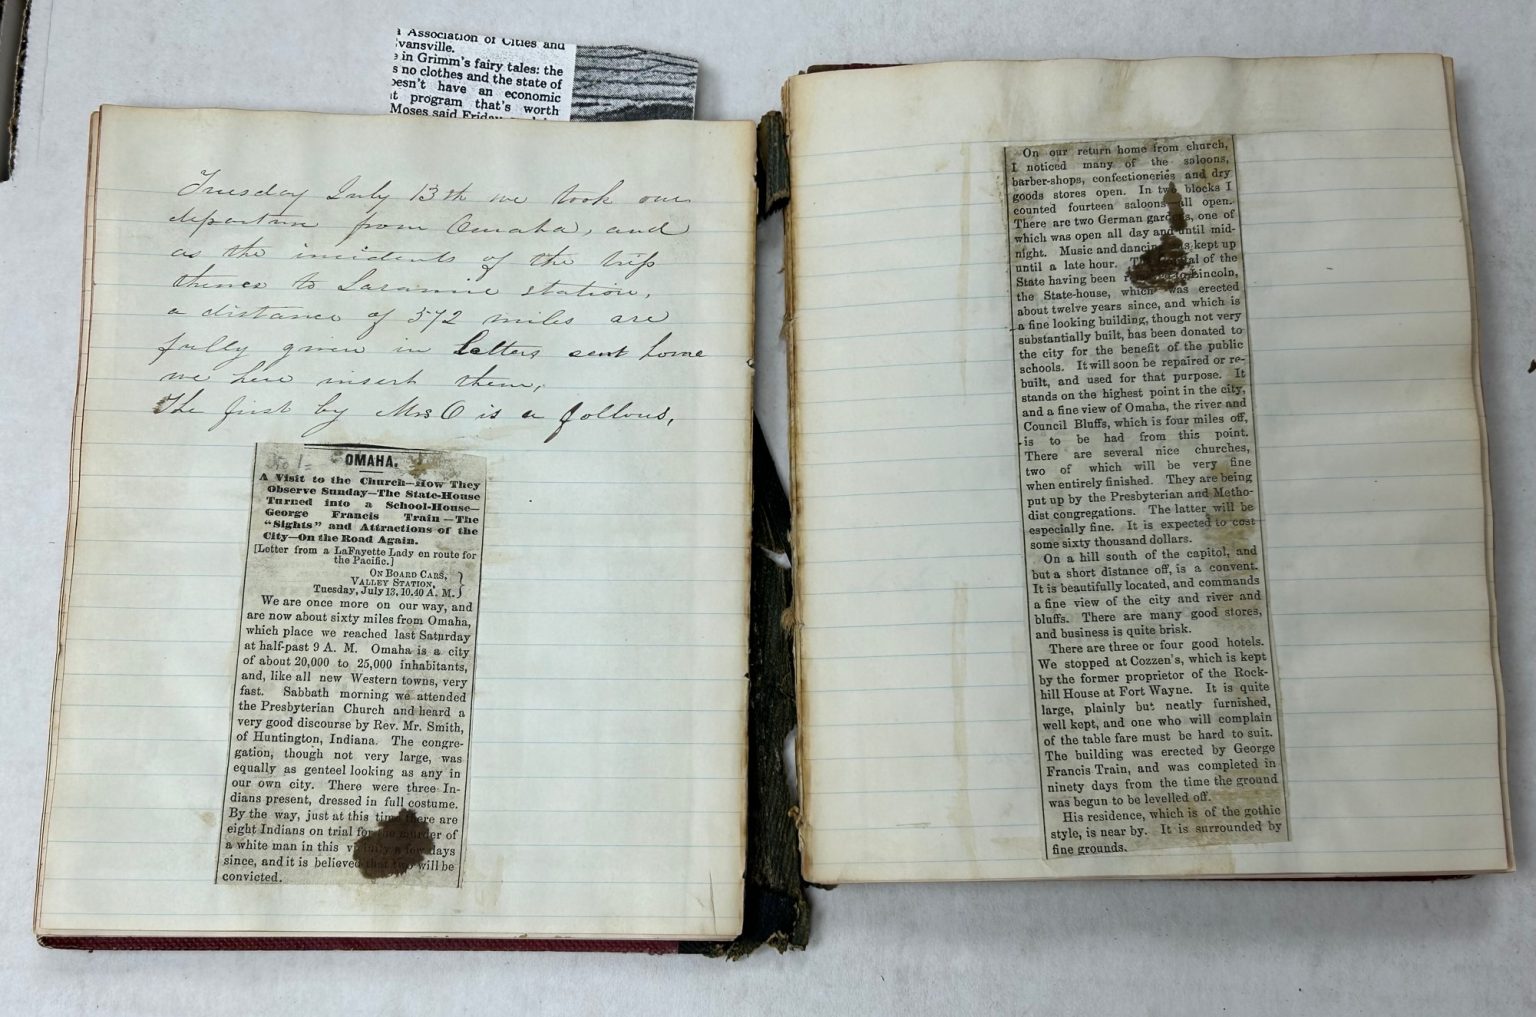 Association of Cities and
vansville.
in Grimm's fairy tales: the
s no clothes and the state of
esn't have an economic
t program that's worth
Moses said Friday
Tuesday July 13th we took our
departure from Omaha, and
as the incidents of the trip
thence to Laramie station,
a distance of 572 miles are
fully given in letters sent home
we here insert them,
The first by Mrs O is as follows,
No 1=
OMAHA.
A Visit to the Church—How They
Observe Sunday—The State-House
Turned into a School-House—
George Francis Train—The
"Sights" and Attractions of the
City—On the Road Again.
[Letter from a LaFayette Lady en route for
the Pacific.]
ON BOARD CARS,
VALLEY STATION,
Tuesday, July 13, 10.40 A. M. }
We are once more on our way, and
are now about sixty miles from Omaha,
which place we reached last Saturday
at half-past 9 A. M. Omaha is a city
of about 20,000 to 25,000 inhabitants,
and, like all new Western towns, very
fast. Sabbath morning we attended
the Presbyterian Church and heard a
very good discourse by Rev. Mr. Smith,
of Huntington, Indiana. The congre-
gation, though not very large, was
equally as genteel looking as any in
our own city. There were three In-
dians present, dressed in full costume.
By the way, just at this time there are
eight Indians on trial for the murder of
a white man in this vicinity a few days
since, and it is believed that two will be
convicted.
On our return home from church,
I noticed many of the saloons,
barber-shops, confectioneries and dry
goods stores open. In two blocks I
counted fourteen saloons all open.
There are two German gardens, one of
which was open all day and until mid-
night. Music and dancing was kept up
until a late hour. The capital of the
State having been to Lincoln,
the State-house, which was erected
about twelve years since, and which is
a fine looking building, though not very
substantially built, has been donated to
the city for the benefit of the public
schools. It will soon be repaired or re-
built, and used for that purpose. It
stands on the highest point in the city,
and a fine view of Omaha, the river and
Council Bluffs, which is four miles off,
is to be had from this point.
There are several nice churches,
two of which will be very fine
when entirely finished. They are being
put up by the Presbyterian and Metho-
dist congregations. The latter will be
especially fine. It is expected to cost
some sixty thousand dollars.
On a hill south of the capitol, and
but a short distance off, is a convent.
It is beautifully located, and commands
a fine view of the city and river and
bluffs. There are many good stores,
and business is quite brisk.
There are three or four good hotels.
We stopped at Cozzen's, which is kept
by the former proprietor of the Rock-
hill House at Fort Wayne. It is quite
large, plainly but neatly furnished,
well kept, and one who will complain
of the table fare must be hard to suit.
The building was erected by George
Francis Train, and was completed in
ninety days from the time the ground
was begun to be levelled off.
His residence, which is of the gothic
style, is near by. It is surrounded by
fine grounds.